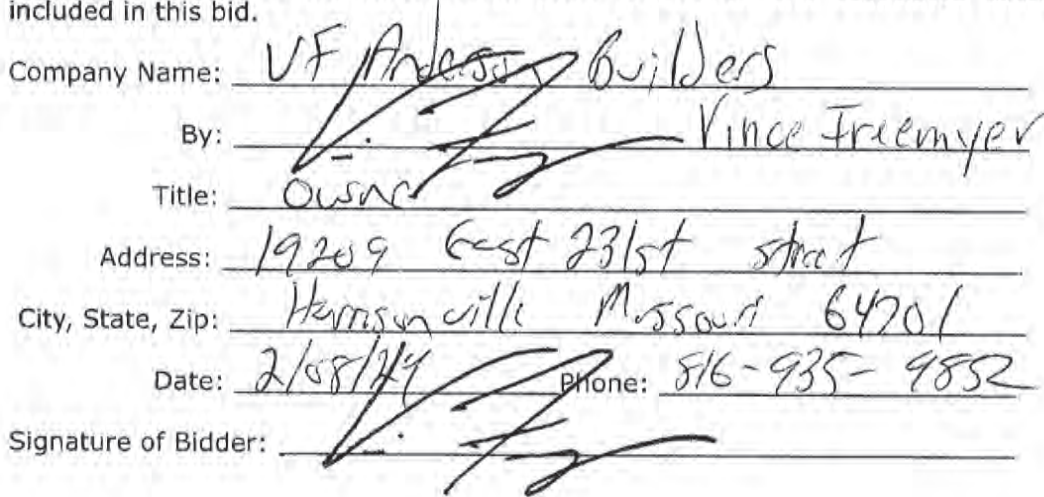 included in this bid.
Company Name: VF Anderson Builders
By: Vince Freemyer
Title: Owner
Address: 19209 East 231st street
City, State, Zip: Harrisonville Missouri 64701
Date: 2/08/24 Phone: 816-935-9852
Signature of Bidder: